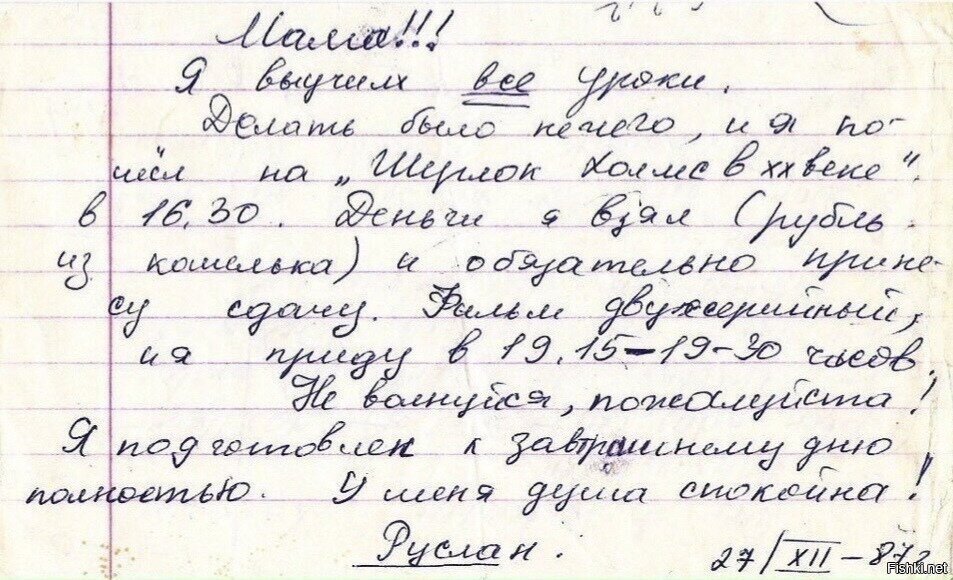 Мама!!!
Я выучил все уроки.
Делать было нечего, и я по-
шёл на „Шерлок Холмс в XX веке".
в 16.30. Деньги я взял (рубль
из кошелька) и обязательно прине-
су сдачу. Фильм двухсерийный,
и я приду в 19.15-19-30 часов.
Не волнуйся, пожалуйста!
Я подготовлен к завтрашнему дню
полностью. У меня душа спокойна!
Руслан.
27/XII-87г
Fishki.net